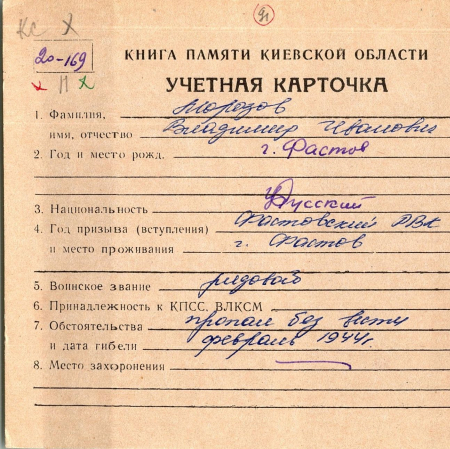 91
КС X
20-169
х П х
КНИГА ПАМЯТИ КИЕВСКОЙ ОБЛАСТИ
УЧЕТНАЯ КАРТОЧКА
1. Фамилия, Морозов
имя, отчество Владимир Иванович
2. Год и место рожд. г. Фастов
3. Национальность Русский
4. Год призыва (вступления) Фастовский РВК
и место проживания г. Фастов
5. Воинское звание рядовой
6. Принадлежность к КПСС, ВЛКСМ
7. Обстоятельства пропал без вести
и дата гибели февраль 1944г.
8. Место захоронения